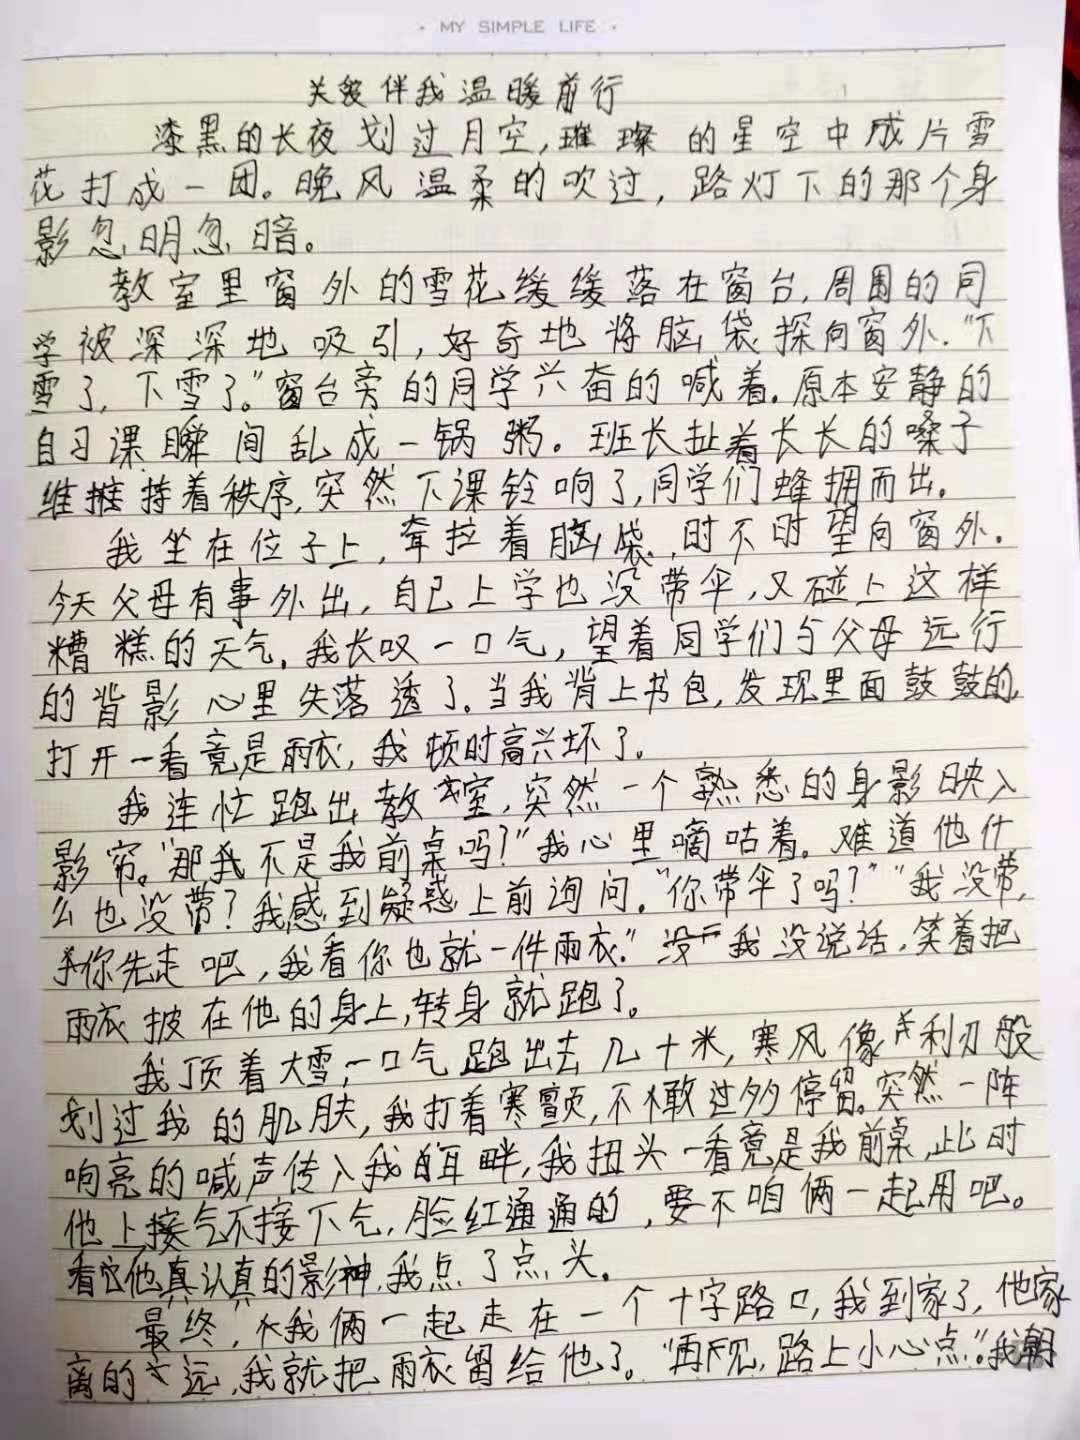 · MY SIMPLE LIFE ·
关爱伴我温暖前行
漆黑的长夜划过月空,璀璨的星空中成片雪
花打成一团。晚风温柔的吹过,路灯下的那个身
影忽明忽暗。
教室里窗外的雪花缓缓落在窗台,周围的同
学被深深地吸引,好奇地将脑袋探向窗外."下
雪了,下雪了。"窗台旁的同学兴奋的喊着。原本安静的
自习课瞬间乱成一锅粥。班长扯着长长的嗓子
维持着秩序,突然下课铃响了,同学们蜂拥而出。
我坐在位子上,耷拉着脑袋,时不时望向窗外.
今天父母有事外出,自己上学也没带伞,又碰上这样
糟糕的天气。我长叹一口气,望着同学们与父母远行
的背影心里失落透了。当我背上书包,发现里面鼓鼓的,
打开一看竟是雨衣,我顿时高兴坏了。
我连忙跑出教室,突然一个熟悉的身影映入
影帘。"那不是我前桌吗?"我心里嘀咕着。难道他什
么也没带?我感到疑惑上前询问."你带伞了吗?""我没带,
你先走吧,我看你也就一件雨衣."我没说话,笑着把
雨衣披在他的身上,转身就跑了。
我顶着大雪,一口气跑出去几十米,寒风像利刃般
划过我的肌肤,我打着寒颤,不敢过多停留。突然一阵
响亮的喊声传入我耳畔,我扭头一看竟是我前桌,此时
他上接气不接下气,脸红通通的,要不咱俩一起用吧。
看他认真的影神,我点了点头。
最终,我俩一起走在一个十字路口,我到家了,他家
离的远,我就把雨衣留给他了。"再见,路上小心点。"我朝